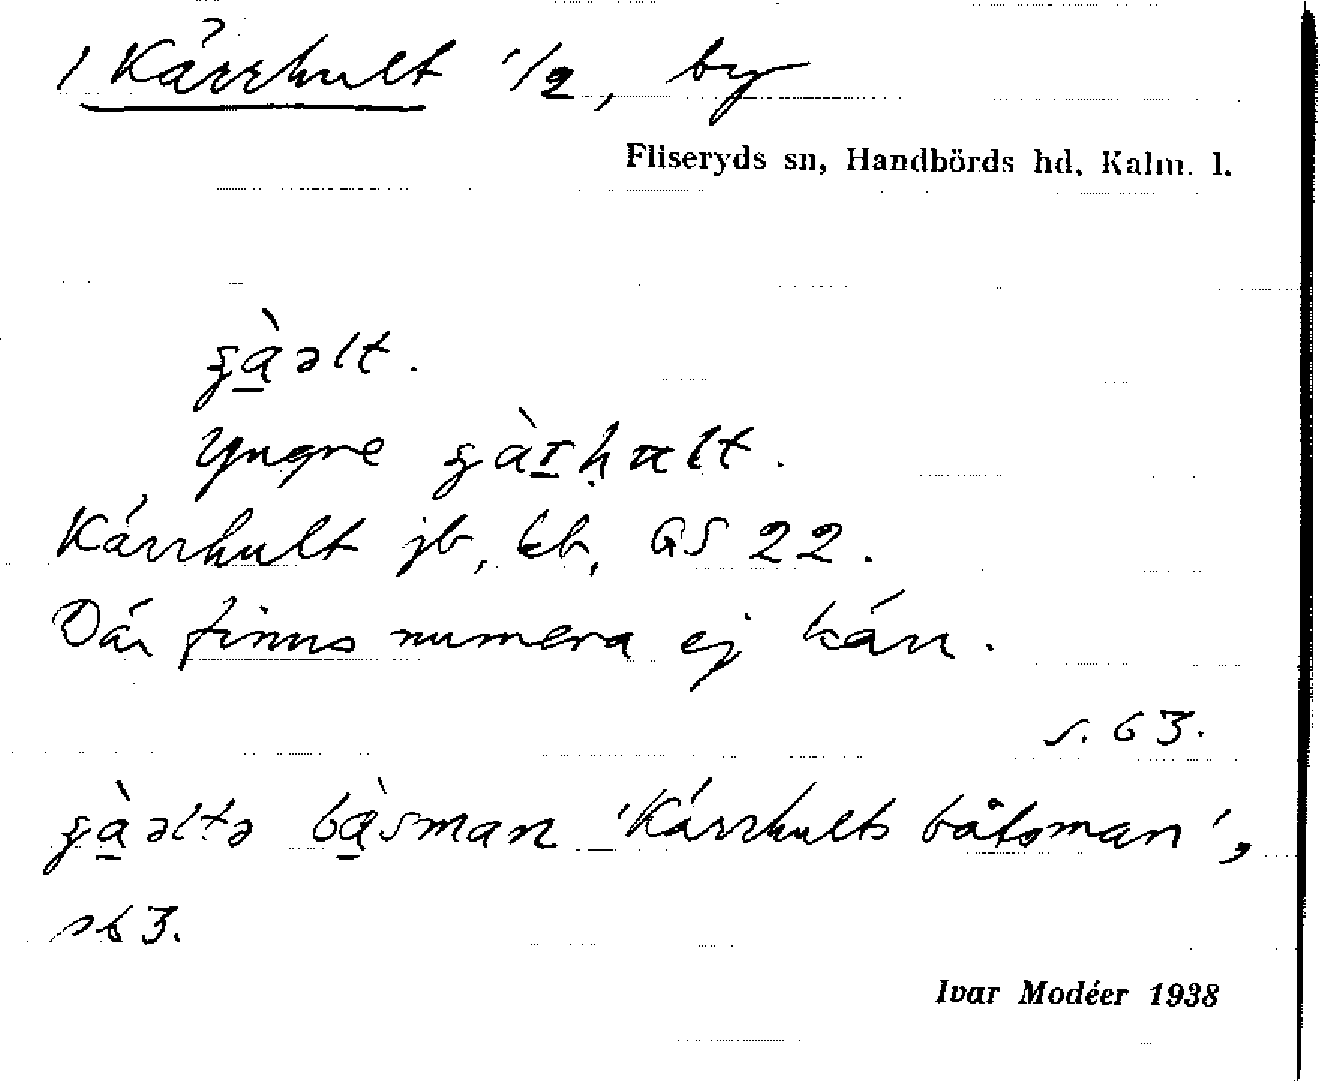 1 Kärrhult 1/2, by
Fliseryds sn, Handbörds hd, Kalm. l.
Yngre
Kärrhult jb, kb, GS 22.
Där finns numera ej kärr.
s. 63.
'Kärrhults båtsman',
s63.
Ivar Modéer 1938